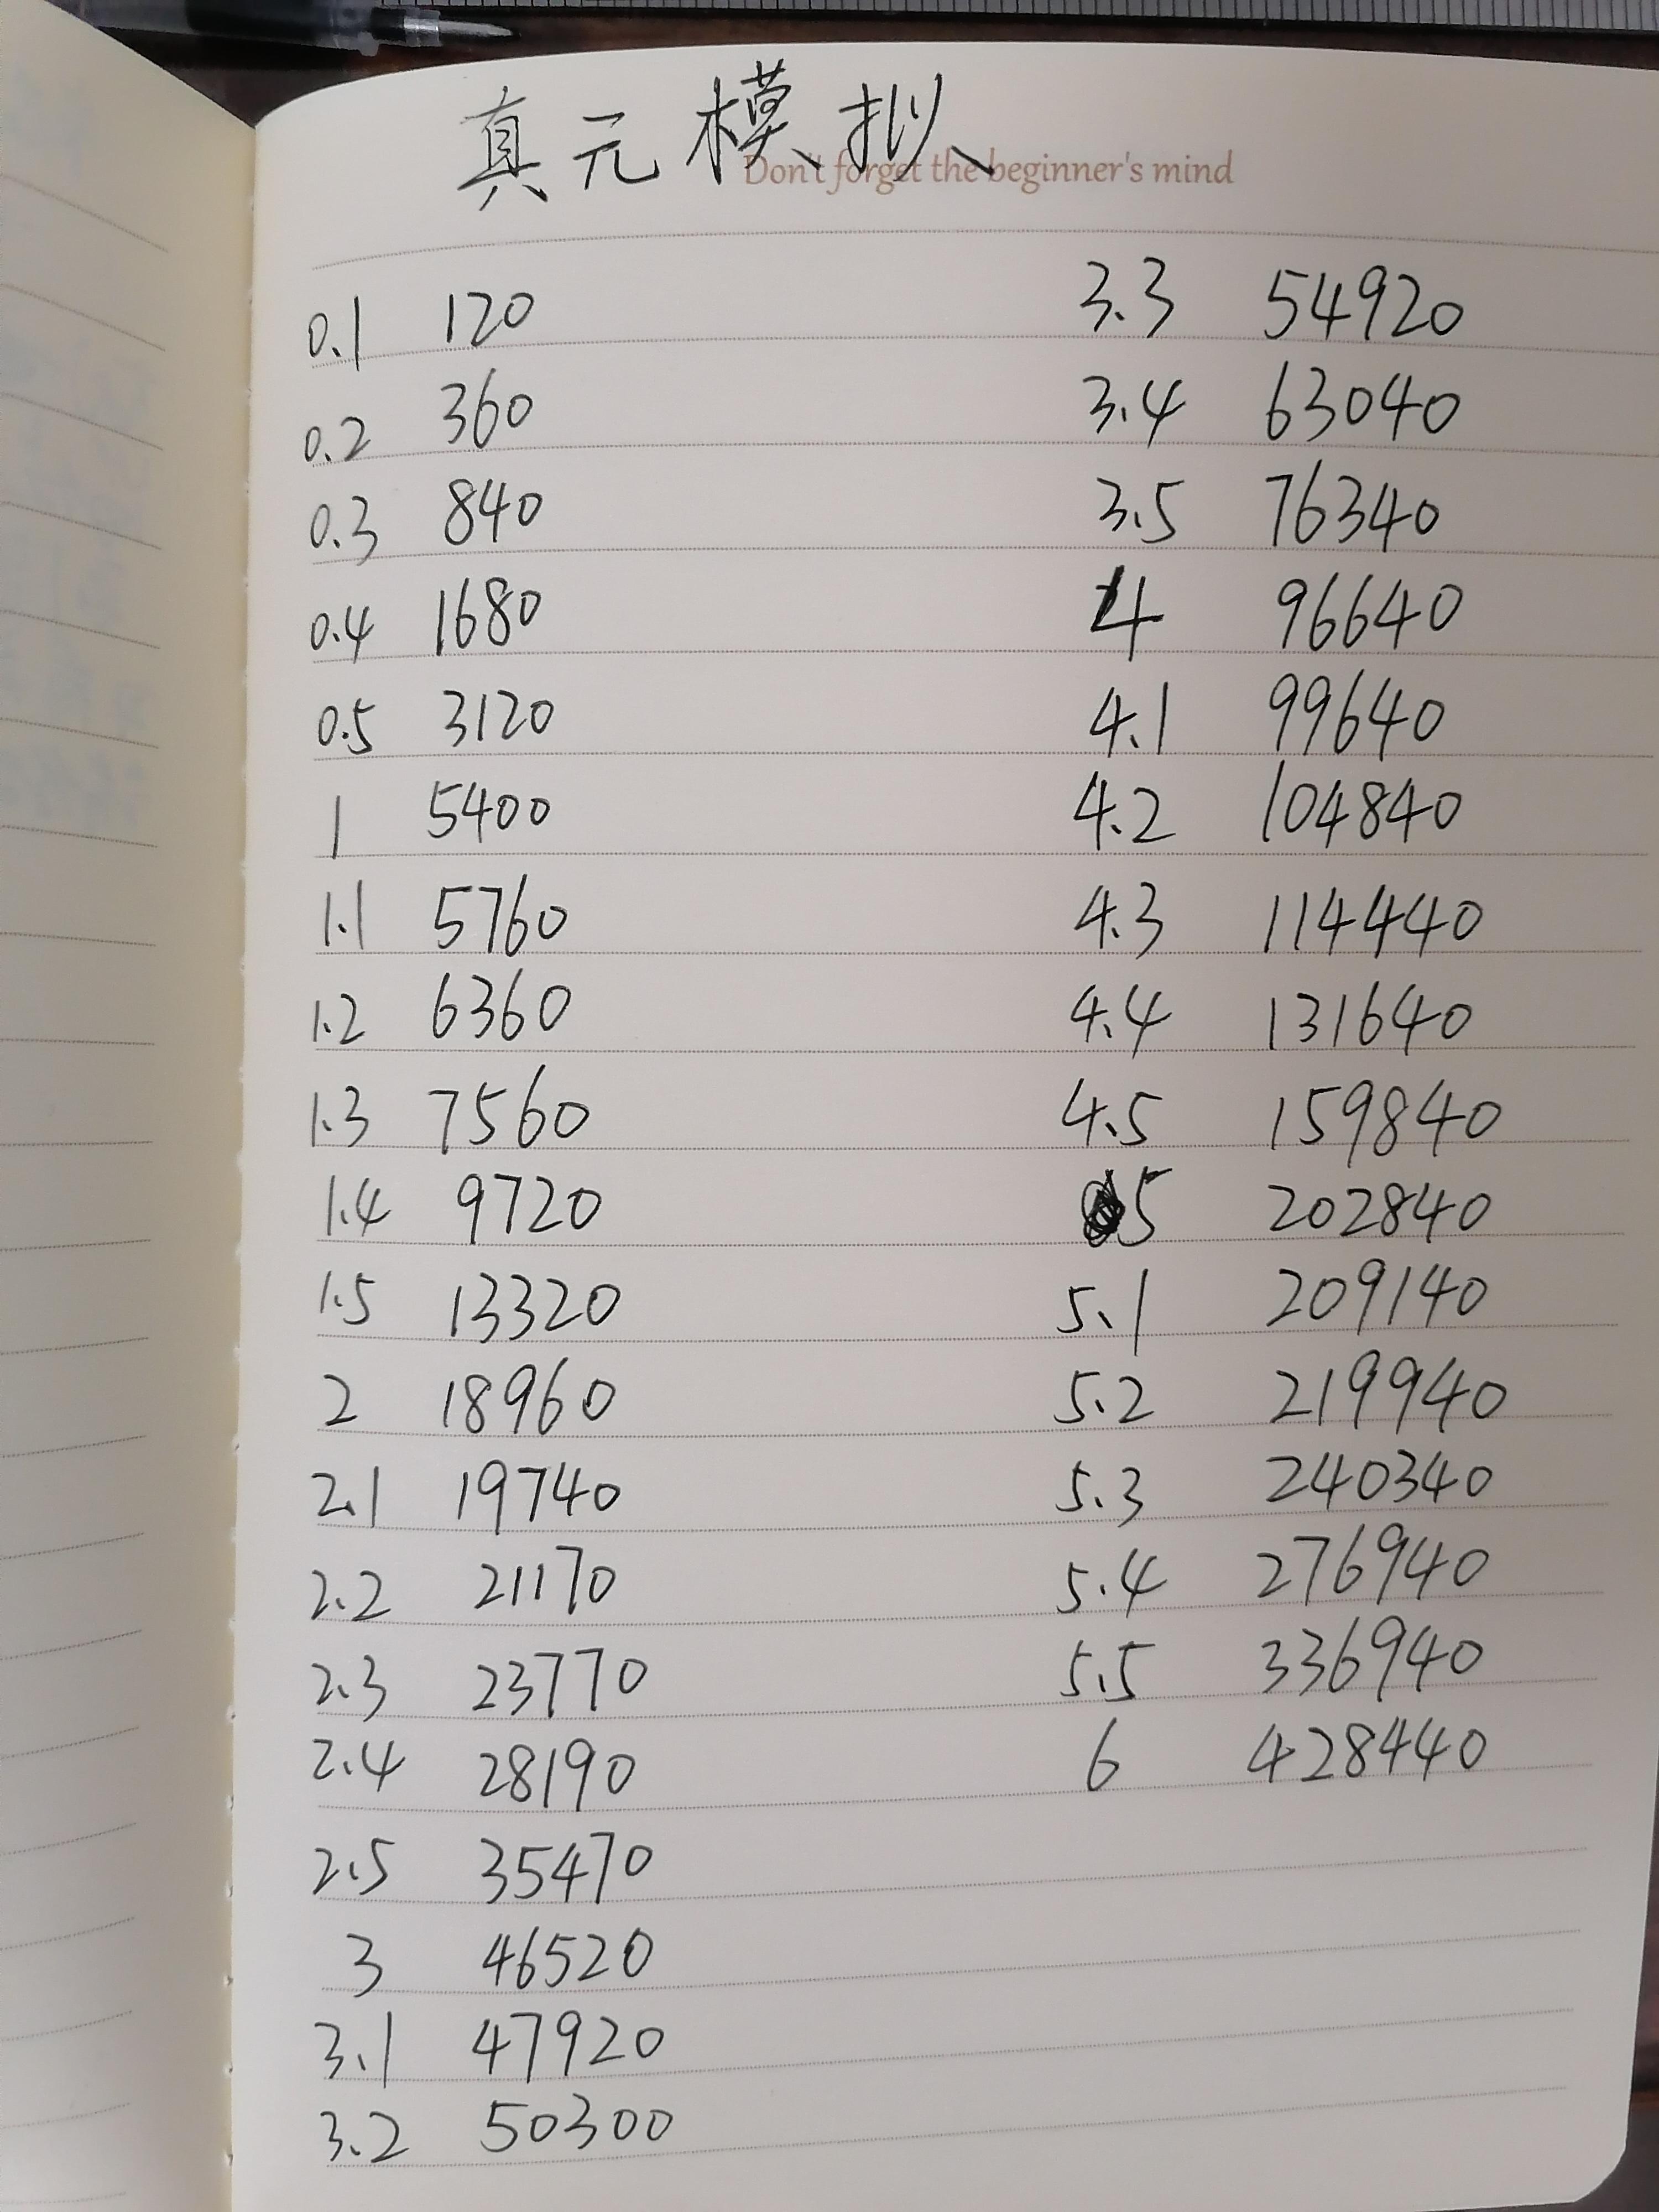 真元模拟
Don't forget the beginner's mind
0.1 120
0.2 360
0.3 840
0.4 1680
0.5 3120
1 5400
1.1 5760
1.2 6360
1.3 7560
1.4 9720
1.5 13320
2 18960
2.1 19740
2.2 21170
2.3 23770
2.4 28190
2.5 35470
3 46520
3.1 47920
3.2 50300
3.3 54920
3.4 63040
3.5 76340
4 96640
4.1 99640
4.2 104840
4.3 114440
4.4 131640
4.5 159840
5 202840
5.1 209140
5.2 219940
5.3 240340
5.4 276940
5.5 336940
6 428440